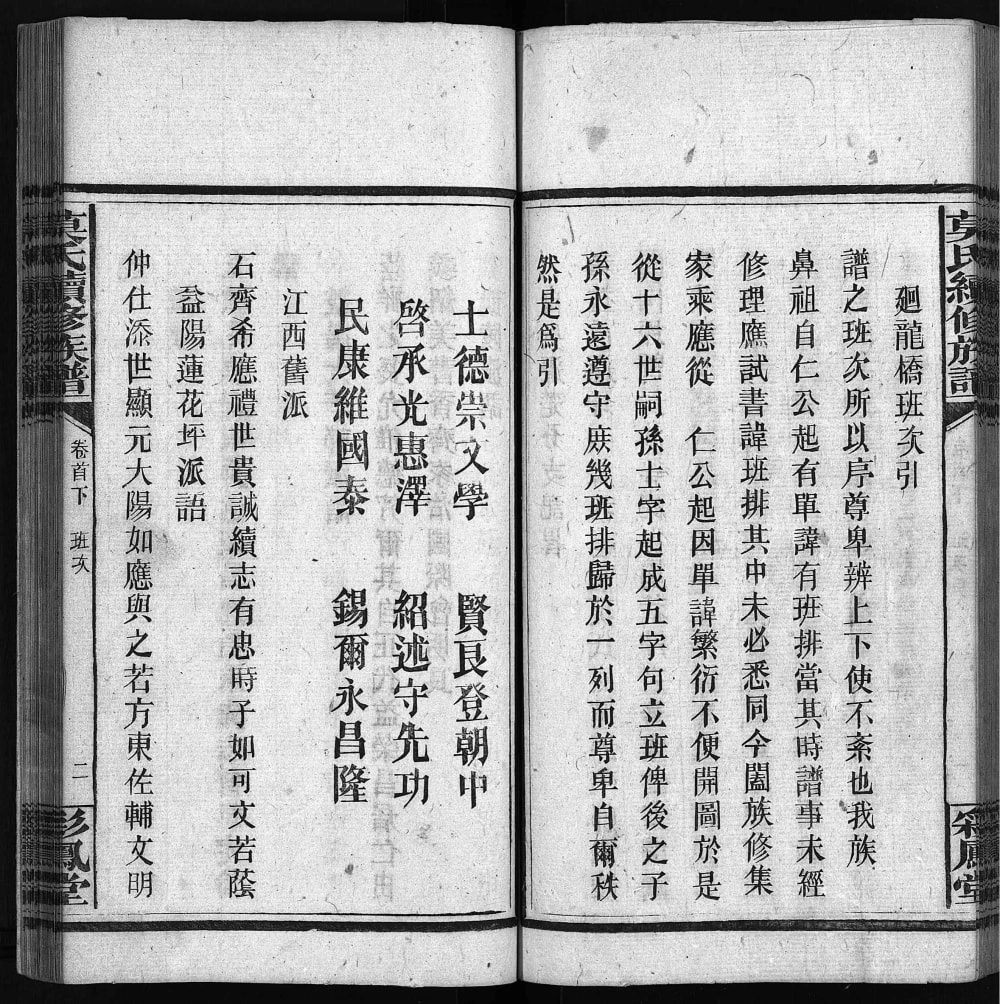 莫氏續修族譜
彩鳳堂
廻龍橋班次引
譜之班次所以序尊卑辨上下使不紊也我族
鼻祖自仁公起有單諱有班排當其時譜事未經
修理應試書諱班排其中未必悉同今闔族修集
家乘應從 仁公起因單諱繁衍不便開圖於是
從十六世嗣孫士字起成五字句立班俾後之子
孫永遠遵守庶幾班排歸於一列而尊卑自爾秩
然是爲引
士德崇文學 賢良登朝中
啓承光惠澤 紹述守先功
民康維國泰 錫爾永昌隆
江西舊派
石齊希應禮世貴誠續志有忠時子如可文若蔭
益陽蓮花坪派語
仲仕添世顯元大陽如應與之若方東佐輔文明
莫氏續修族譜
卷首下 班次
二
彩鳳堂